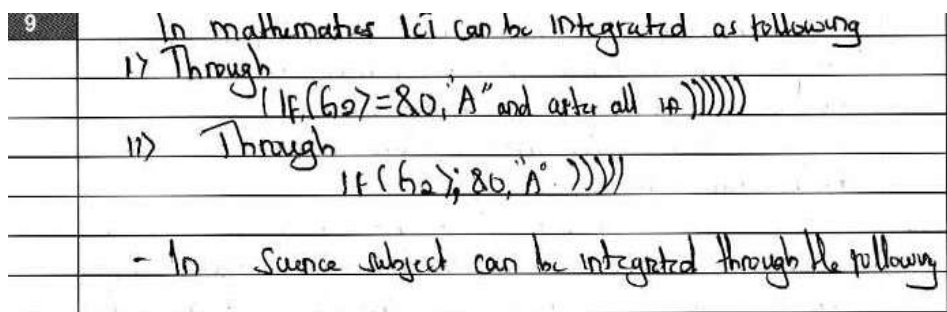 9 In mathematics Ict can be integrated as following
1) Through
(If,(G2>=80,"A" and after all if))))))
11) Through
If(G2>; 80,"A". )))))
- In Science subject can be integrated through the following